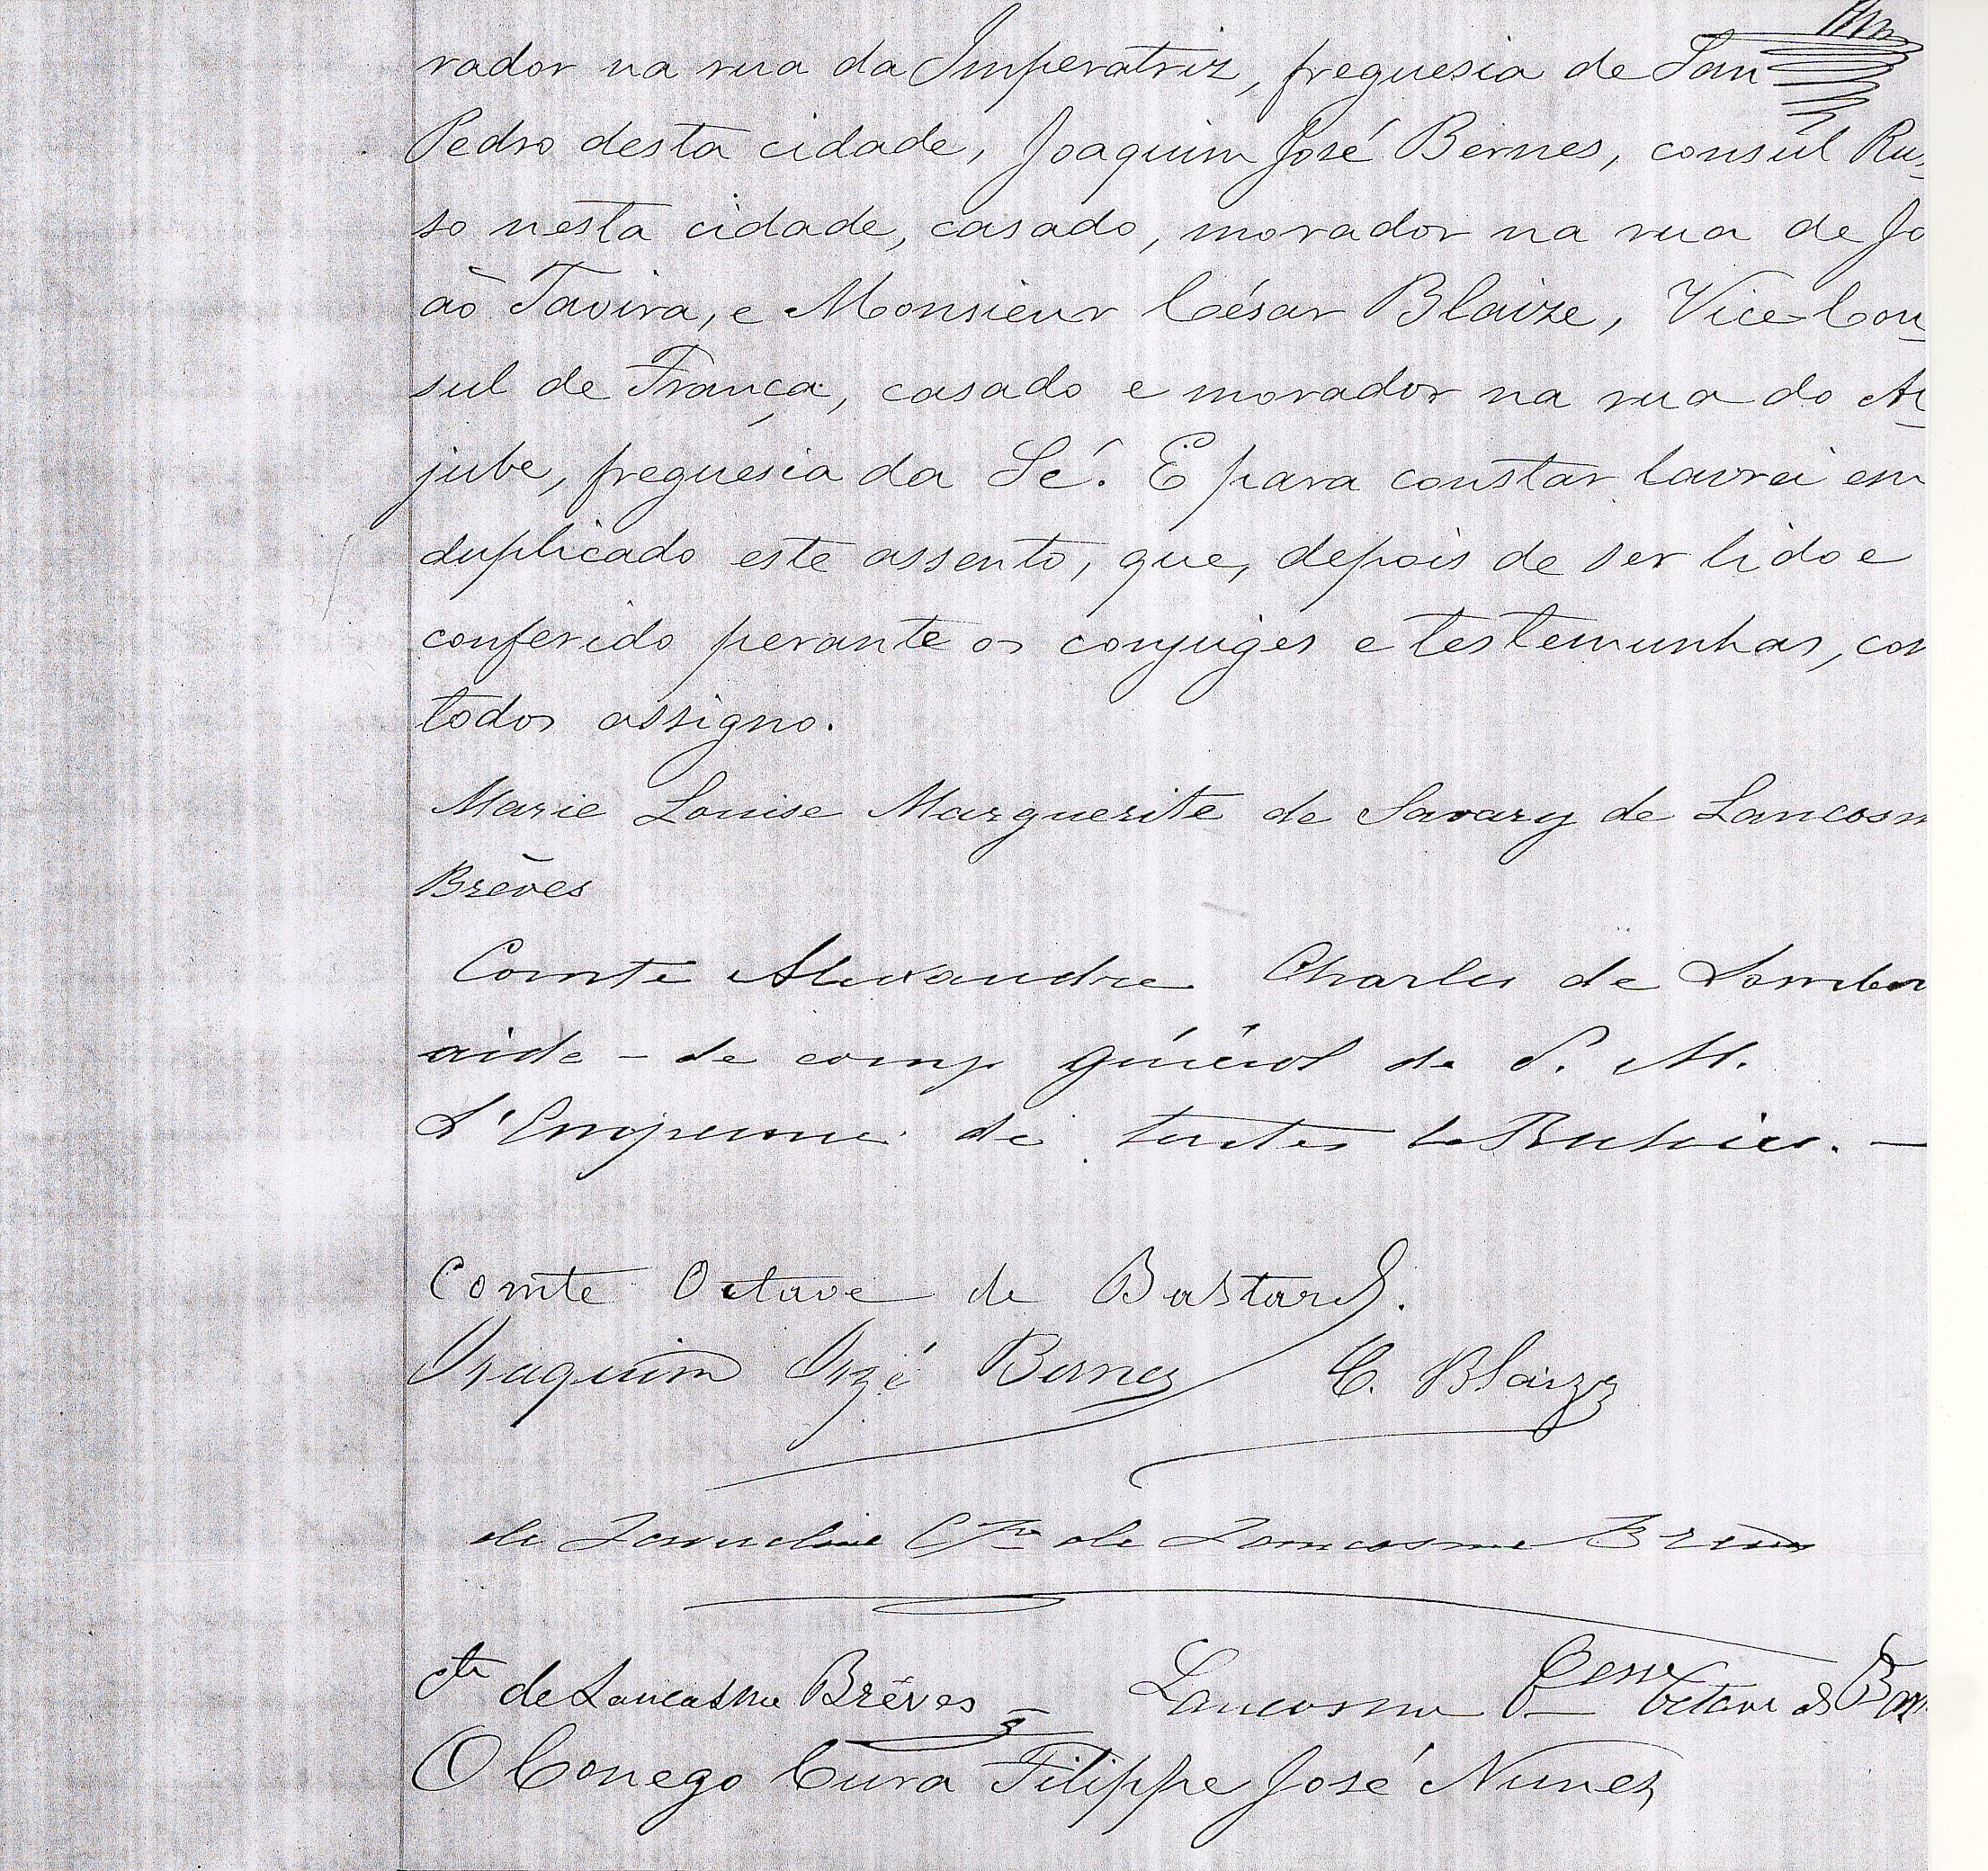 rador na rua da Imperatriz, freguesia de San
Pedro desta cidade, Joaquim José Bernes, consul Rus-
so nesta cidade, casado, morador na rua de Jo
ão Tavira, e Monsieur César Blaize, Vice-Con-
sul de França, casado e morador na rua do Al-
jube, freguesia da Sé. E para constar lavrei em
duplicado este assento, que, depois de ser lido e
conferido perante os conjuges e testemunhas, com
todos assigno.
Marie Louise Marguerite de Savary de Lancosm
Brèves
Comte Alexandre Charles de Lamber
aide-de camp général de S. M.
L'Empereur de toutes les Russies. —
Comte Octave de Bastard.
Joaquim José Bernes C. Blaize
de Lancosme Brèves
Cte de Lancosme Brèves Lancosme Octave de B
O Conego Cura Filippe José Nunes